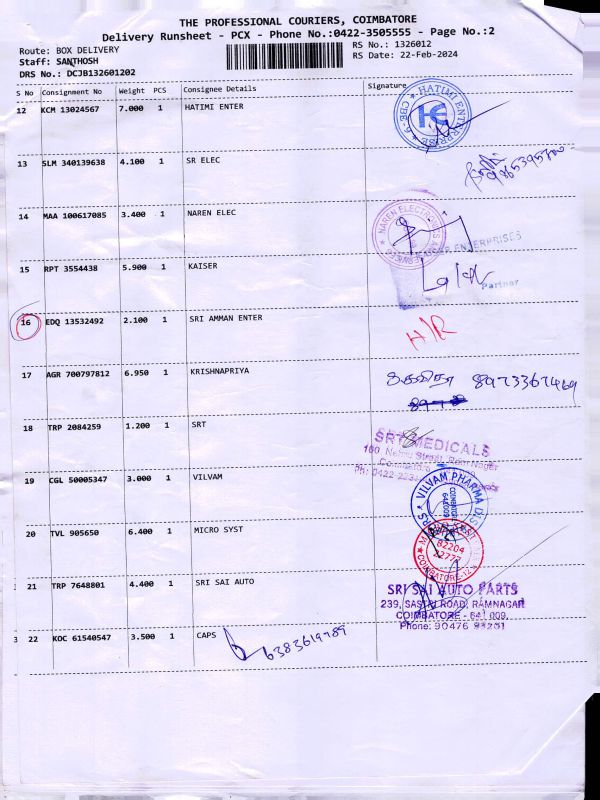 THE PROFESSIONAL COURIERS, COIMBATORE
Delivery Runsheet - PCX - Phone No.:0422-3505555 - Page No.:2
Route: BOX DELIVERY
Staff: SANTHOSH
DRS No.: DCJB132601202
RS No.: 1326012
RS Date: 22-Feb-2024
S No Consignment No Weight PCS Consignee Details Signature
12 KCM 13024567 7.000 1 HATIMI ENTER
HATIMI ENTERPRISE
CBE-6
HE
13 SLM 340139638 4.100 1 SR ELEC
14 MAA 100617085 3.400 1 NAREN ELEC
NAREN ELECTRICALS AND SERVICES
ENTERPRISES
Partner
15 RPT 3554438 5.900 1 KAISER
16 EDQ 13532492 2.100 1 SRI AMMAN ENTER
H/R
17 AGR 700797812 6.950 1 KRISHNAPRIYA
8973367469
18 TRP 2084259 1.200 1 SRT
SRT MEDICALS
Nehru Street, Ram Nagar
19 CGL 50005347 3.000 1 VILVAM
VILVAM PHARMA
20 TVL 905650 6.400 1 MICRO SYST
82204
22777
COIMBATORE-12
21 TRP 7648801 4.400 1 SRI SAI AUTO
SRI SAI AUTO PARTS
239, SASTRI ROAD, RAMNAGAR
COIMBATORE - 641 009.
Phone: 90476
22 KOC 61540547 3.500 1 CAPS
6383619789